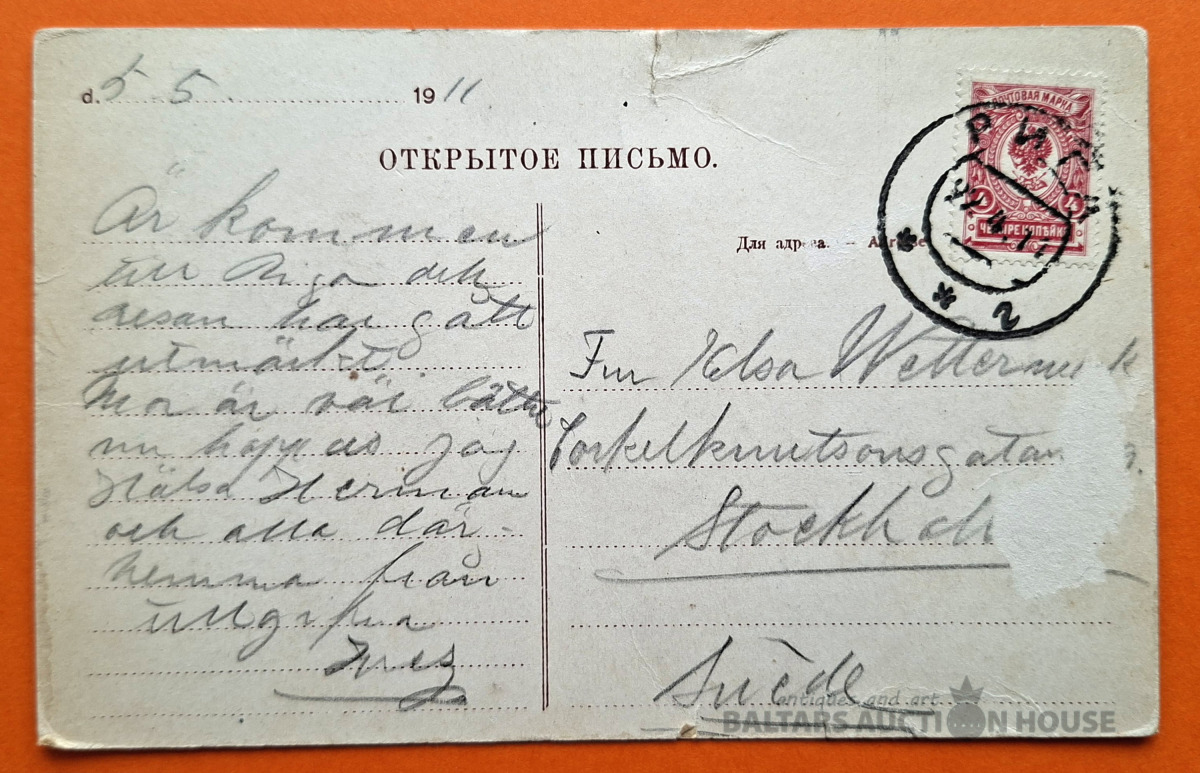 d. 5 5 1911
ОТКРЫТОЕ ПИСЬМО.
ПОЧТОВАЯ МАРКА
4 4
ЧЕТЫРЕ КОПѢЙКИ
РИГА
2
Для адреса. —
Är kommen
till Riga och
resan har gått
utmärkt.
Mor är väl bättre
nu hoppas jag
Hälsa Herman
och alla där-
hemma från
Inez
Elsa
Torkelknutsonsgatan
Stockholm
Suède
antiques and art.
BALTARS AUCTION HOUSE